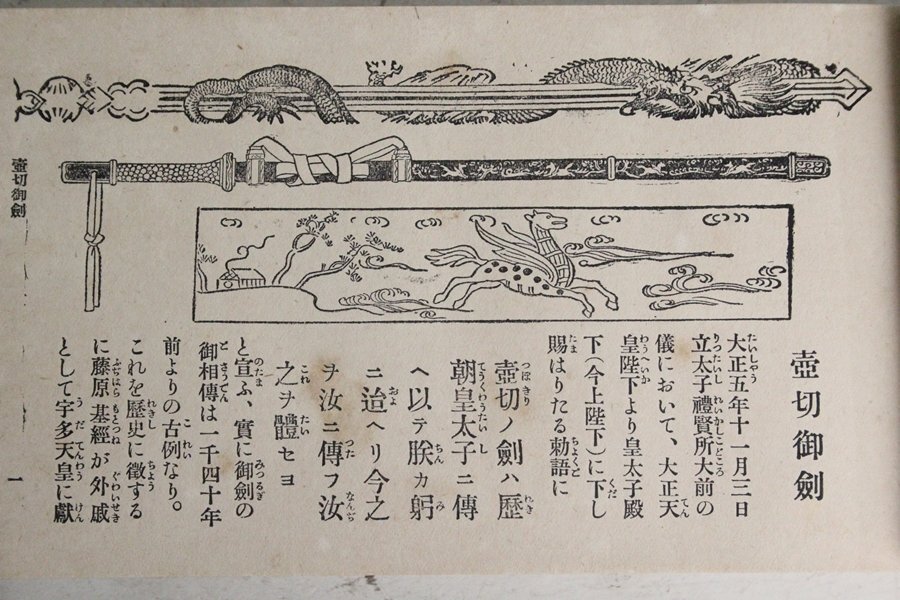 壺切御劍
大正五年十一月三日
立太子禮賢所大前の
儀において、大正天
皇陛下より皇太子殿
下(今上陛下)に下し
賜はりたる勅語に
壺切ノ劍ハ歷
朝皇太子ニ傳
ヘ以テ朕カ躬
ニ迨ヘリ今之
ヲ汝ニ傳フ汝
之ヲ體セヨ
と宣ふ、實に御劍の
御相傳は一千四十年
前よりの古例なり。
これを歷史に徵する
に藤原基經が外戚
として宇多天皇に獻
壺切御劍
一